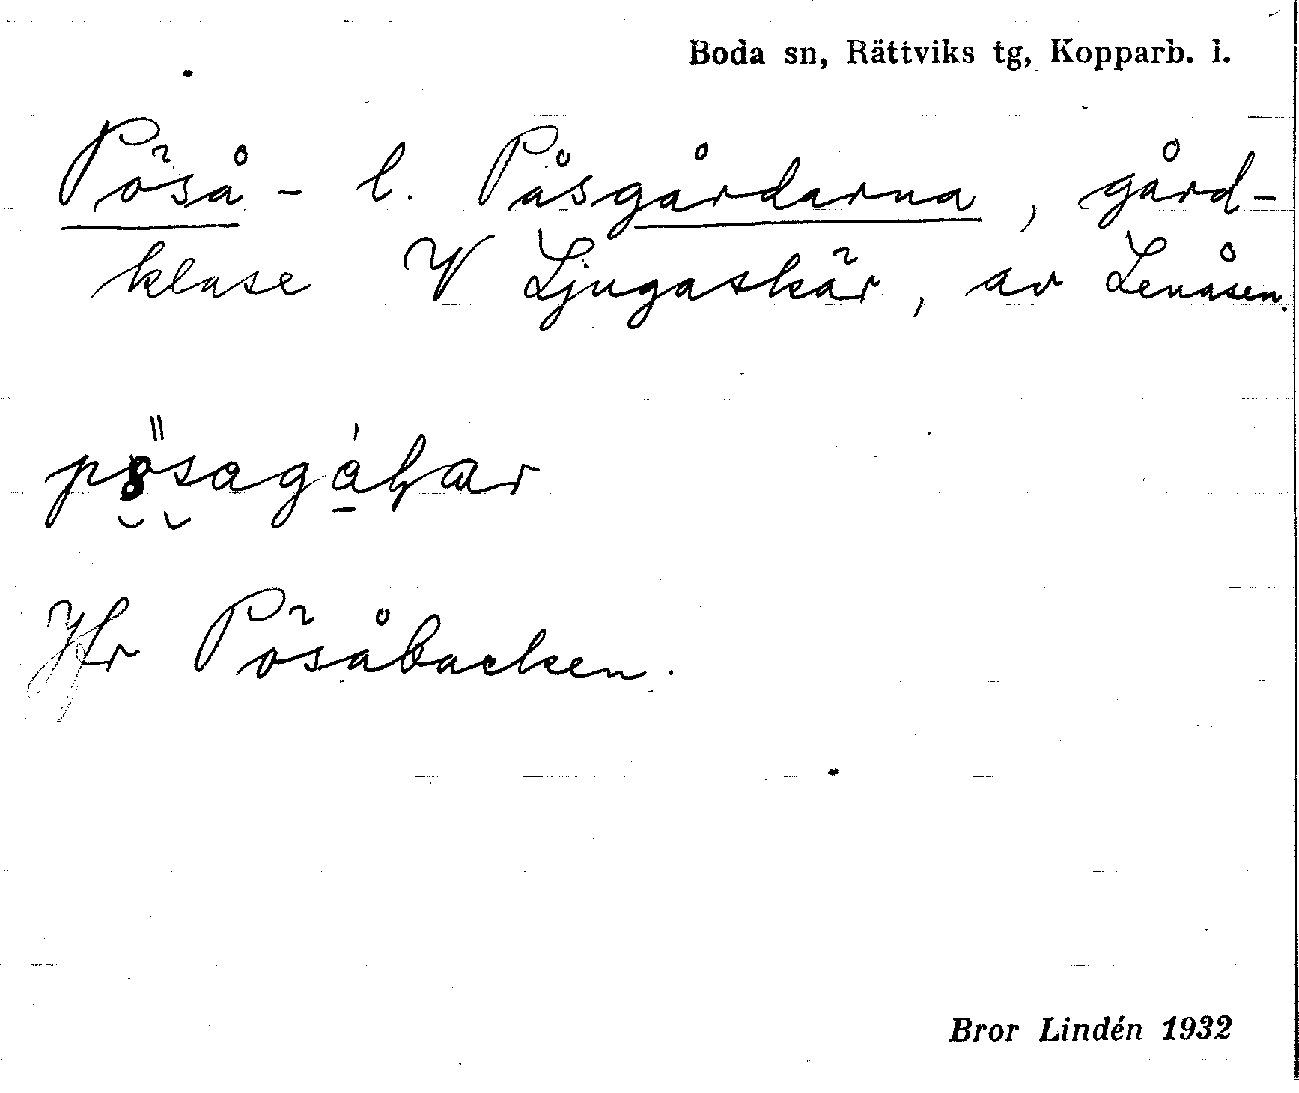 Boda sn, Rättviks tg, Kopparb. l.
Pöså- l. Påsgårdarna, gård-
klase W Ljugaskär, av Lenåsen.
pösagáɦar
Jfr Pösåbacken.
Bror Lindén 1932